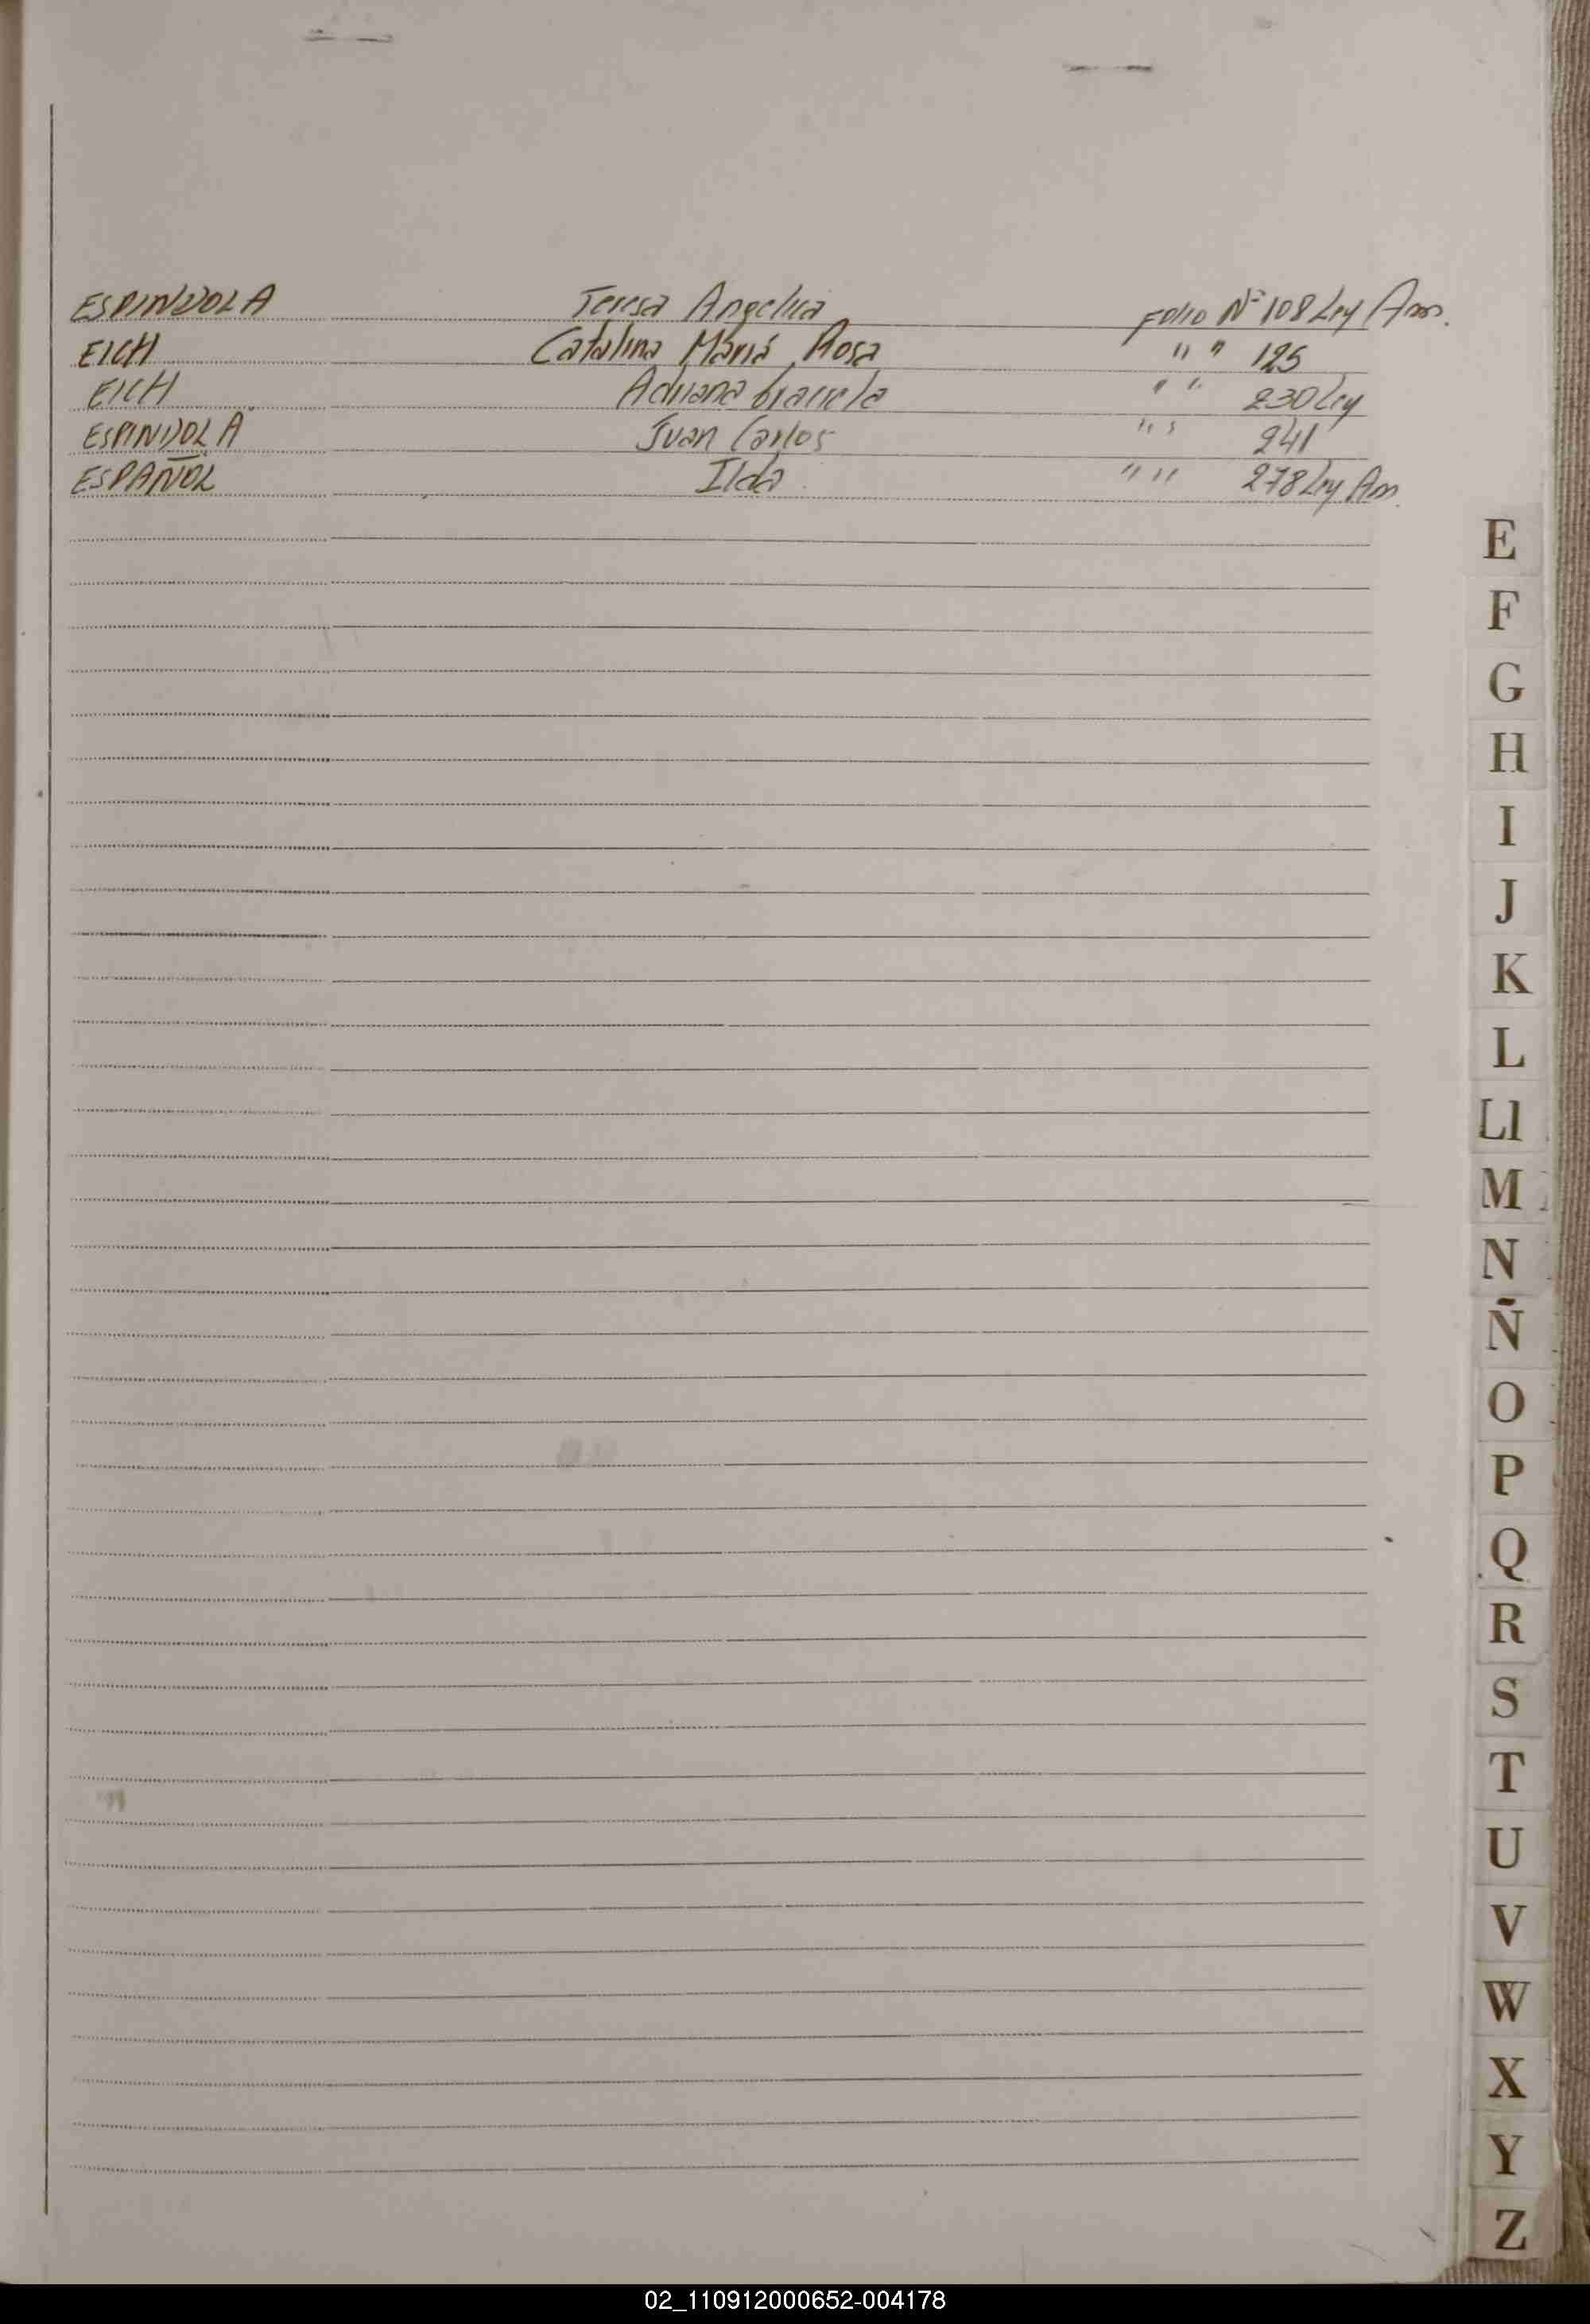 ESPINDOLA Teresa Angelica Folio Nº 108 Ley Am.
EICH Catalina María Rosa " " 125
EICH Adriana Graciela " " 230 Ley
ESPINDOLA Juan Carlos " " 241
ESPAÑOL Ilda " " 278 Ley Am.
E
F
G
H
I
J
K
L
Ll
M
N
Ñ
O
P
Q
R
S
T
U
V
W
X
Y
Z
02_110912000652-004178